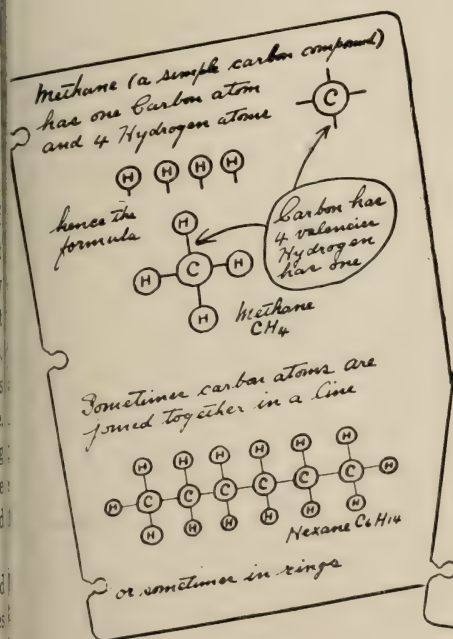 Methane (a simple carbon compound)
has one Carbon atom
and 4 Hydrogen atoms
C
H H H H
hence the
formula
H
H C H
H
Methane
CH4
Carbon has
4 valencies
Hydrogen
has one
Sometimes carbon atoms are
joined together in a line
H H H H H H
H C C C C C C H
H H H H H H
Hexane C6H14
or sometimes in rings